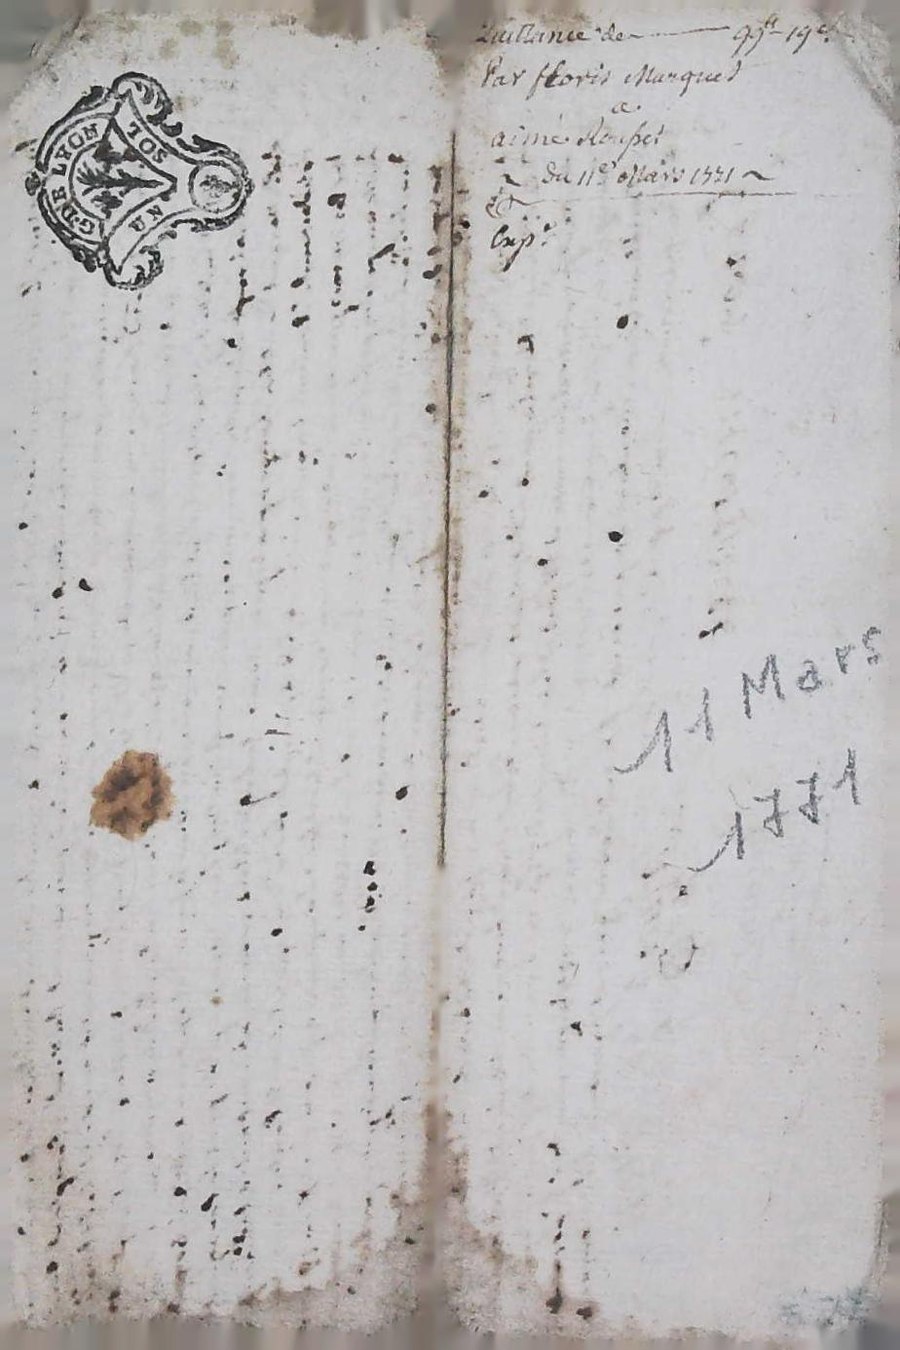 G. DE LYON
UN SOL
Quittance de 99ᵗᵗ 19ˢ
Par floris Marquet
a
aimé
du 11ᵉ Mars 1771
Expᵉ
11 Mars
1771